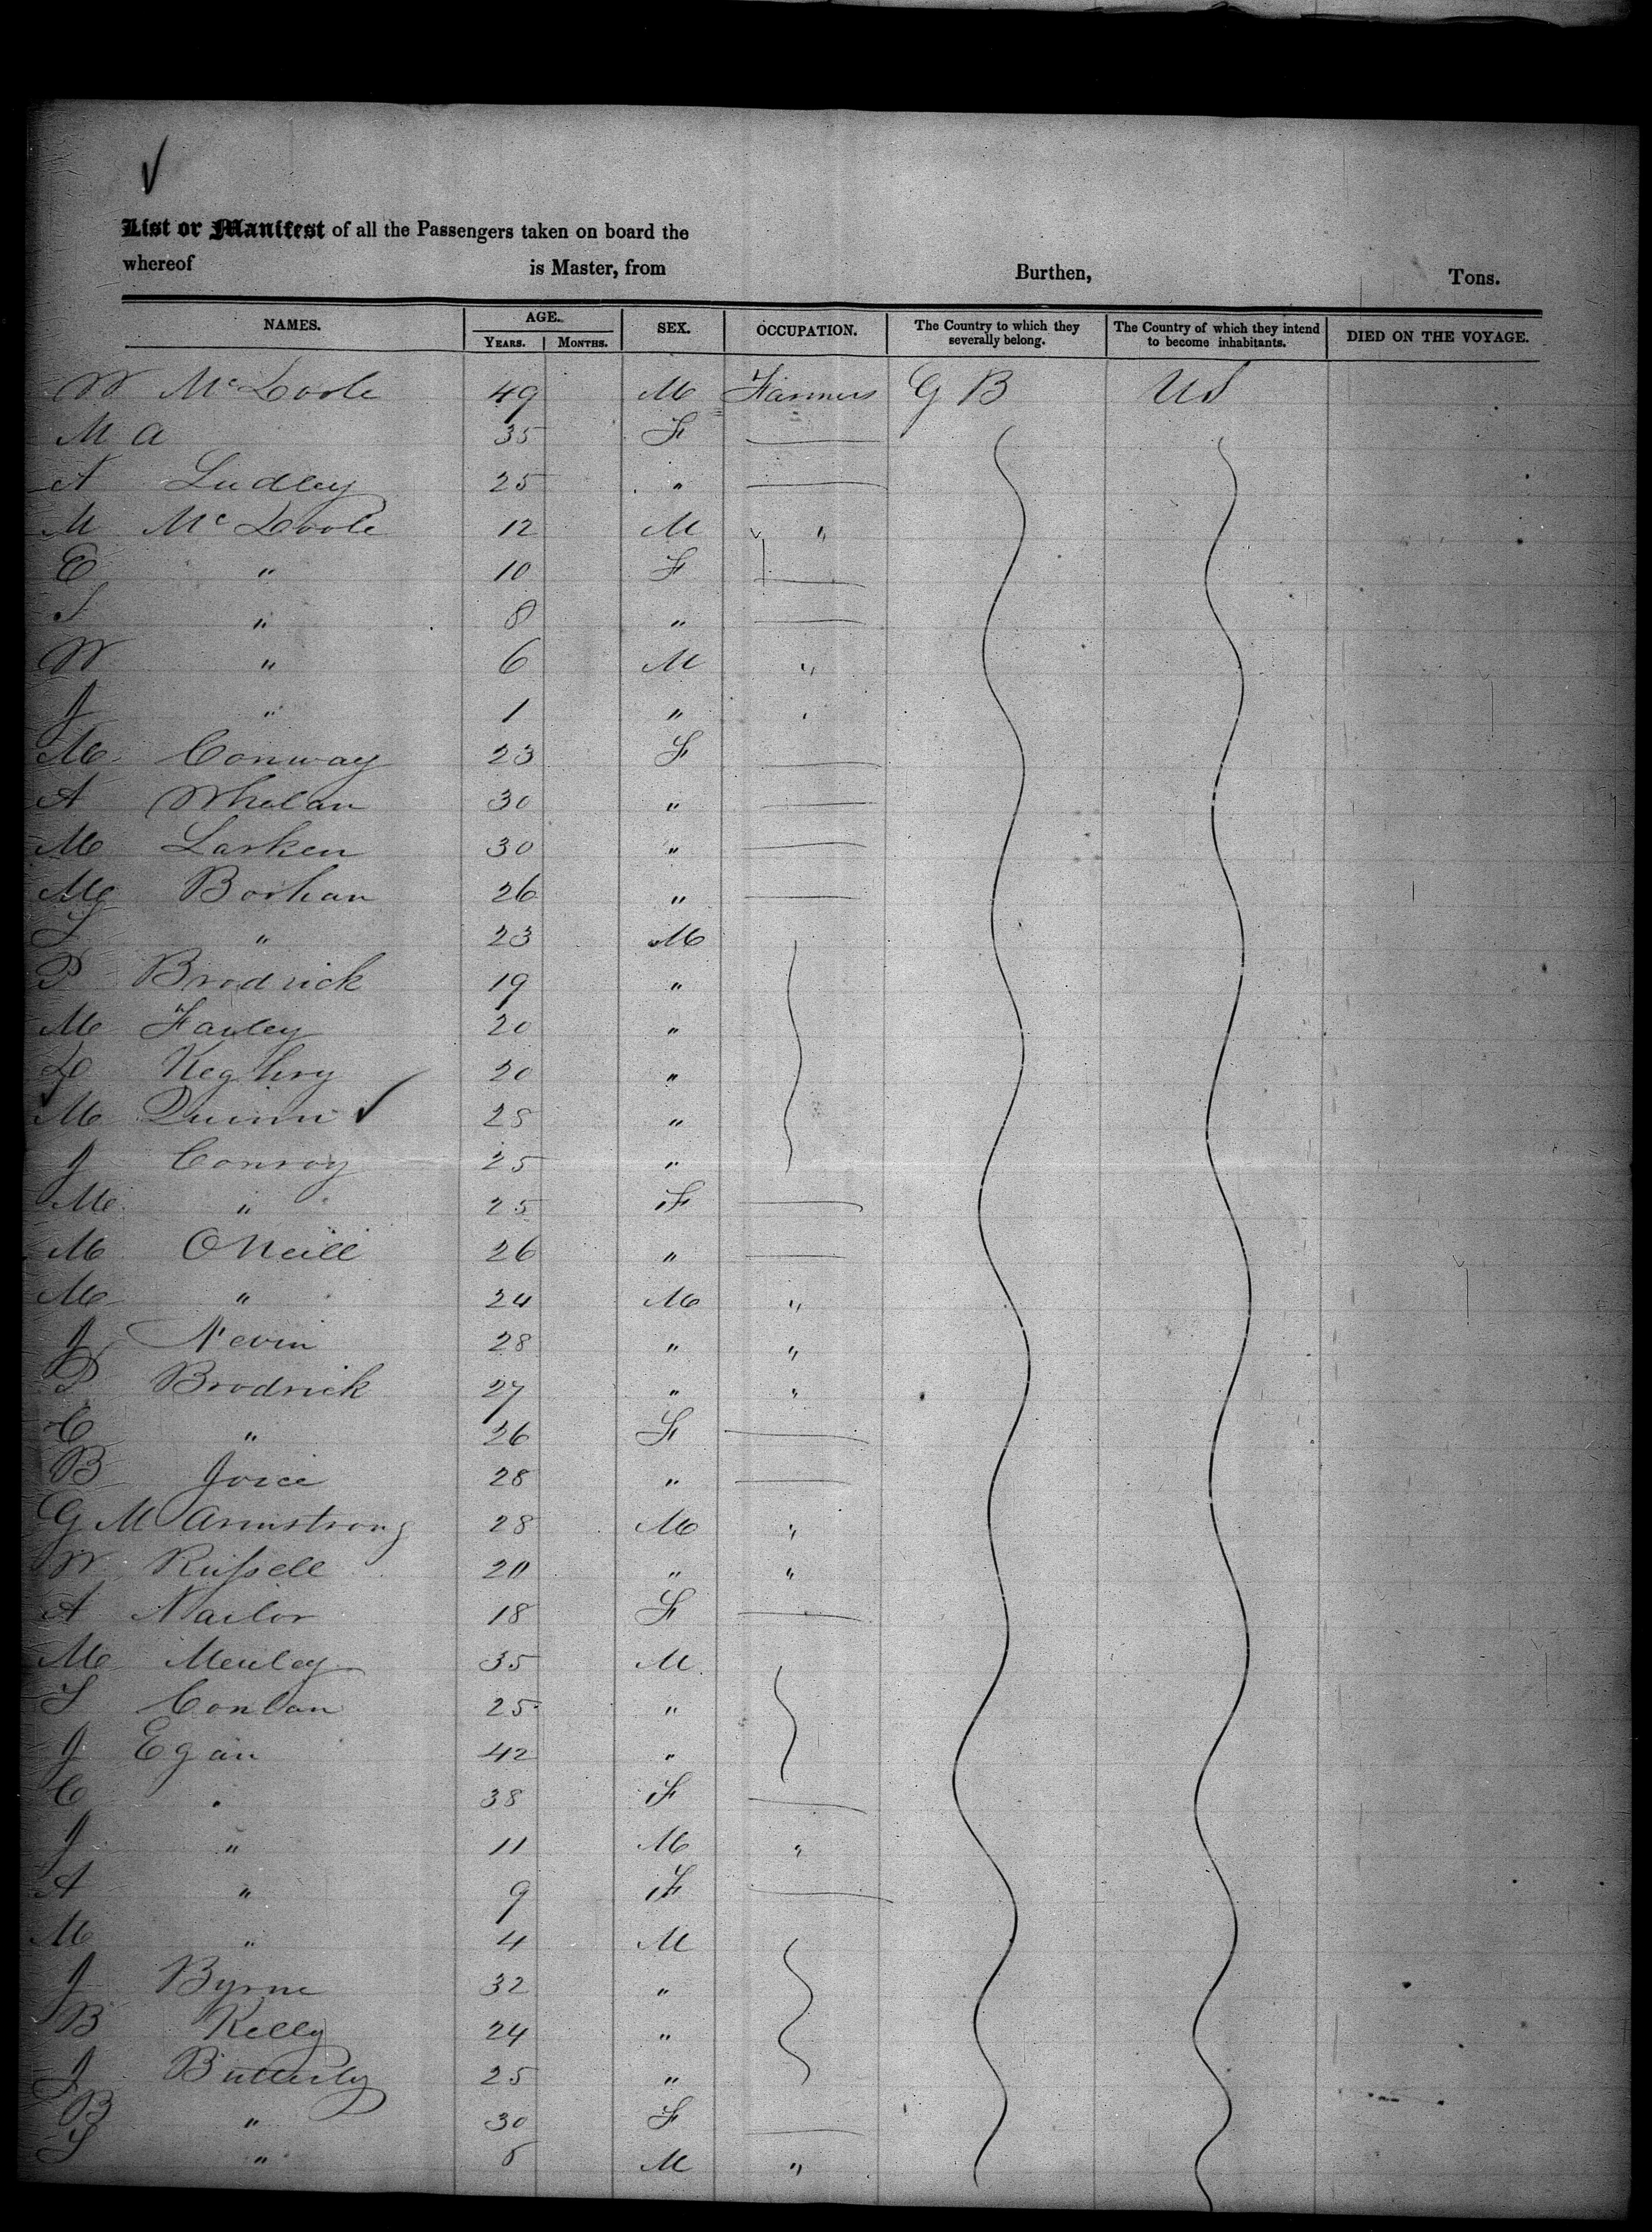 List or Manifest of all the Passengers taken on board the
whereof is Master, from Burthen, Tons.
NAMES. AGE. SEX. OCCUPATION. The Country to which they severally belong. The Country of which they intend to become inhabitants. DIED ON THE VOYAGE.
YEARS. MONTHS.
W McDoole 49 M Farmers G B US
M A 35 F
A Ludley 25 "
M McDoole 12 M "
E " 10 F
S " 8 "
W " 6 M "
J " 1 " "
M Conway 23 F
A Whelan 30 "
M Larken 30 "
Mg Borhan 26 "
" 23 M
P Brodrick 19 "
M Farley 20 "
Keghry 20 "
M Quinn 25 "
J Conroy 25 "
M " 25 F
M ONeill 26 "
M " 24 M "
J Nevin 28 " "
P Brodrick 27 " "
C " 26 F
B Joice 28 "
G M Armstrong 28 M "
W Russell 20 " "
A Nailor 18 F
M 35 M
Conlan 25 "
J Egan 42 "
C " 38 F
J " 11 M "
A " 9 F
M " 4 M
J Byrne 32 "
B Kelly 24 "
J Butterly 25 "
B " 30 F
" M "